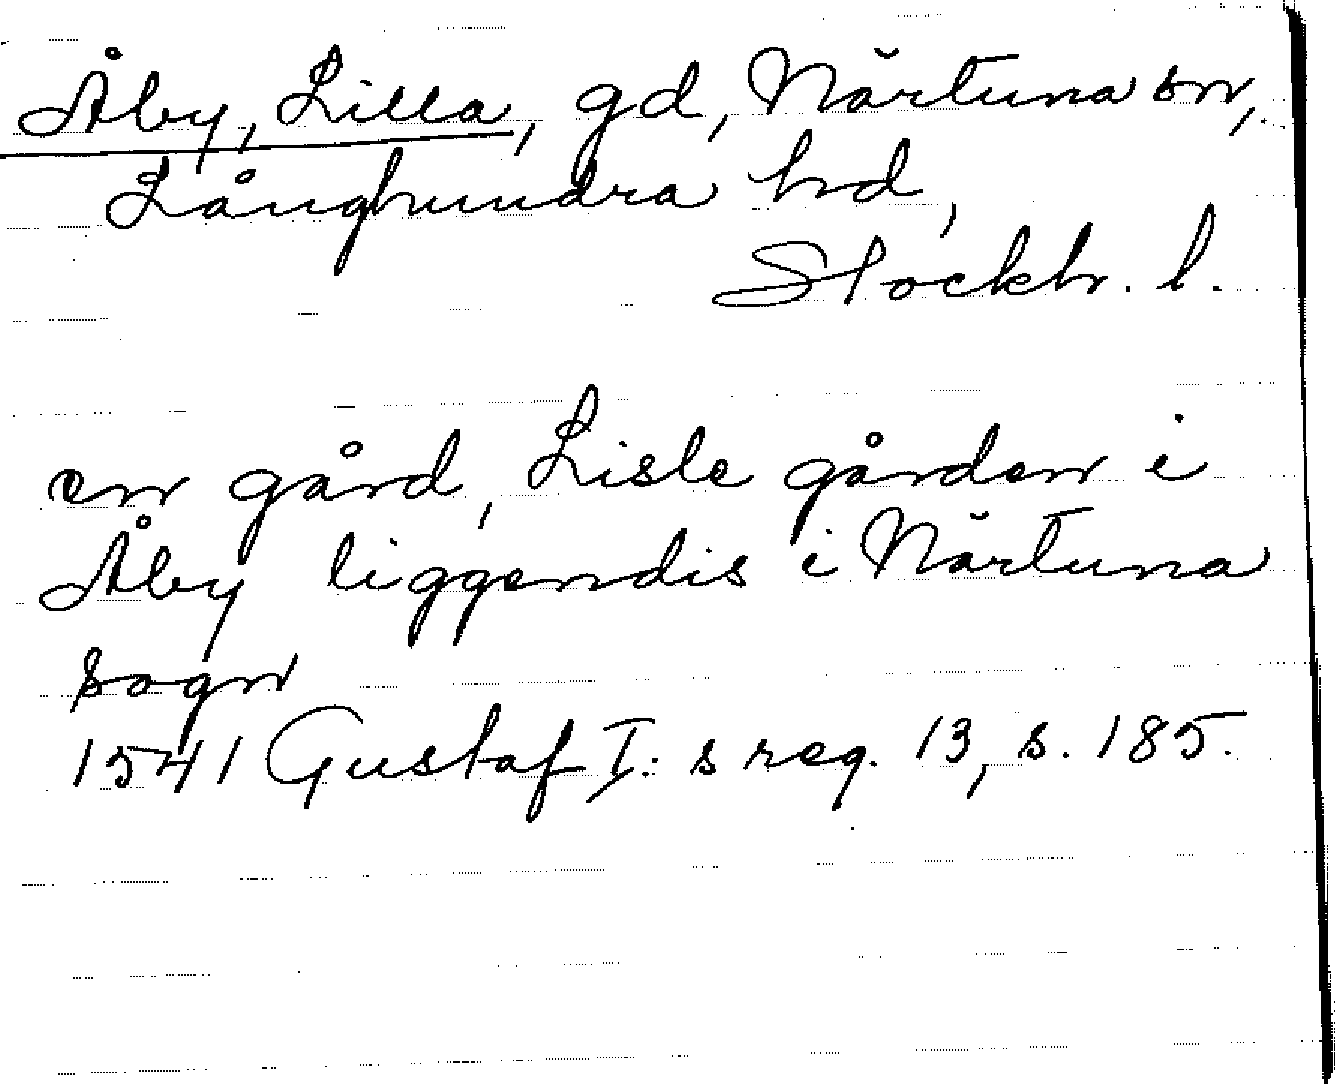 Åby, Lilla, gd, Närtuna sn,
Långhundra hd,
Stockh. l.
en gård, Lisle gården i
Åby liggendis i Närtuna
sogn
1541 Gustaf I:s reg. 13, s. 185.